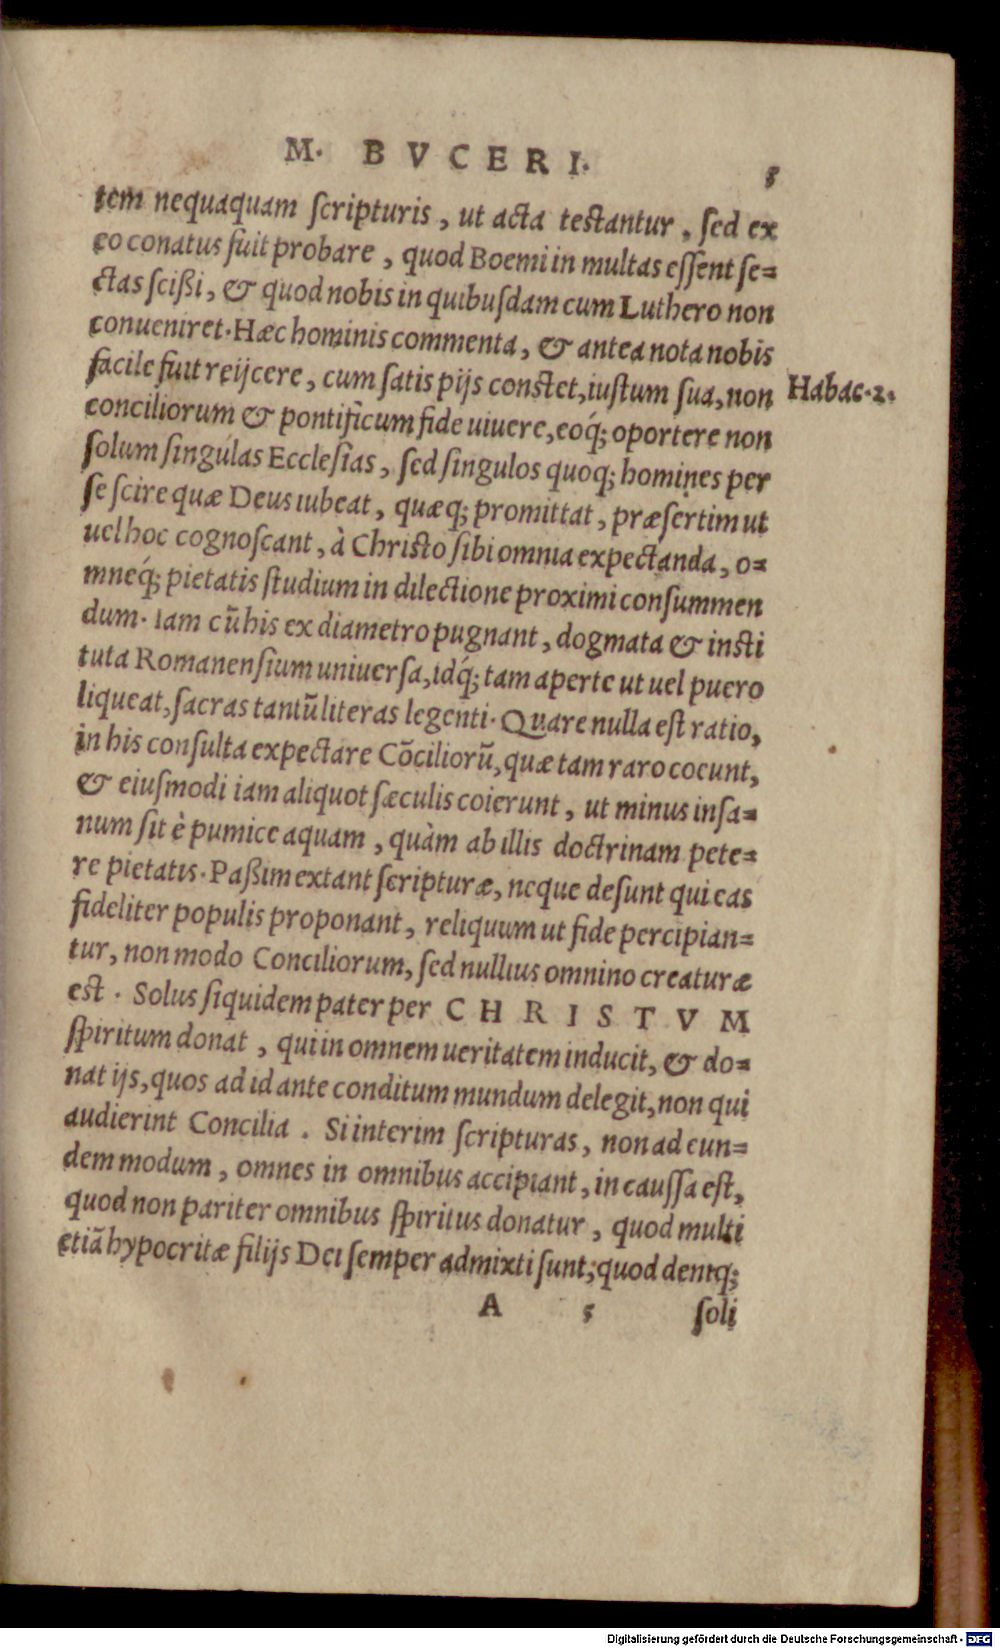 M. BVCERI.
5
tem nequaquam ſcripturis, ut acta teſtantur, ſed ex
eo conatus fuit probare, quod Boemi in multas eſſent ſe=
ctas ſcißi, & quod nobis in quibuſdam cum Luthero non
conueniret. Hæc hominis commenta, & antea nota nobis
facile fuit reijcere, cum ſatis pijs conſtet, iuſtum ſua, non
Habac. 2.
conciliorum & pontificum fide uiuere, eoq́; oportere non
ſolum ſingulas Eccleſias, ſed ſingulos quoq; homines per
ſe ſcire quæ Deus iubeat, quæq; promittat, præſertim ut
uel hoc cognoſcant, à Chriſto ſibi omnia expectanda, o=
mneq́; pietatis ſtudium in dilectione proximi conſummen
dum. Iam cū his ex diametro pugnant, dogmata & inſti
tuta Romanenſium uniuerſa, idq́; tam aperte ut uel puero
liqueat, ſacras tantū literas legenti. Quare nulla eſt ratio,
in his conſulta expectare Cōciliorū, quæ tam raro coeunt,
& eiuſmodi iam aliquot ſæculis coierunt, ut minus inſa=
num ſit è pumice aquam, quàm ab illis doctrinam pete=
re pietatis. Paßim extant ſcripturæ, neque deſunt qui eas
fideliter populis proponant, reliquum ut fide percipian=
tur, non modo Conciliorum, ſed nullius omnino creaturæ
eſt. Solus ſiquidem pater per CHRISTVM
ſpiritum donat, qui in omnem ueritatem inducit, & do=
nat ijs, quos ad id ante conditum mundum delegit, non qui
audierint Concilia. Si interim ſcripturas, non ad eun=
dem modum, omnes in omnibus accipiant, in cauſſa eſt,
quod non pariter omnibus ſpiritus donatur, quod multi
etiā hypocritæ filijs Dei ſemper admixti ſunt; quod deniq;
A 5 ſoli
Digitalisierung gefördert durch die Deutsche Forschungsgemeinschaft - DFG